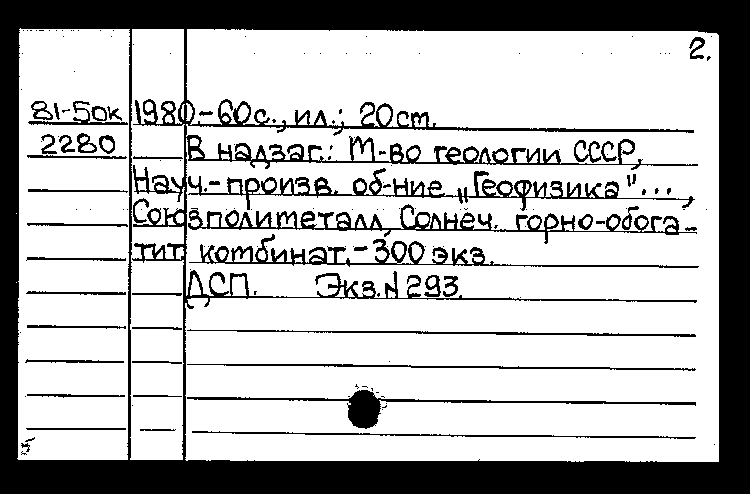 2.
81-5ок 1980.-60с., ил.; 20см.
2280 В надзаг.: М-во геологии СССР,
Науч.-произв. об-ние „Геофизика"...,
Союзполиметалл, Солнеч. горно-обога-
тит. комбинат.-300 экз.
ДСП. Экз.N 293.
5